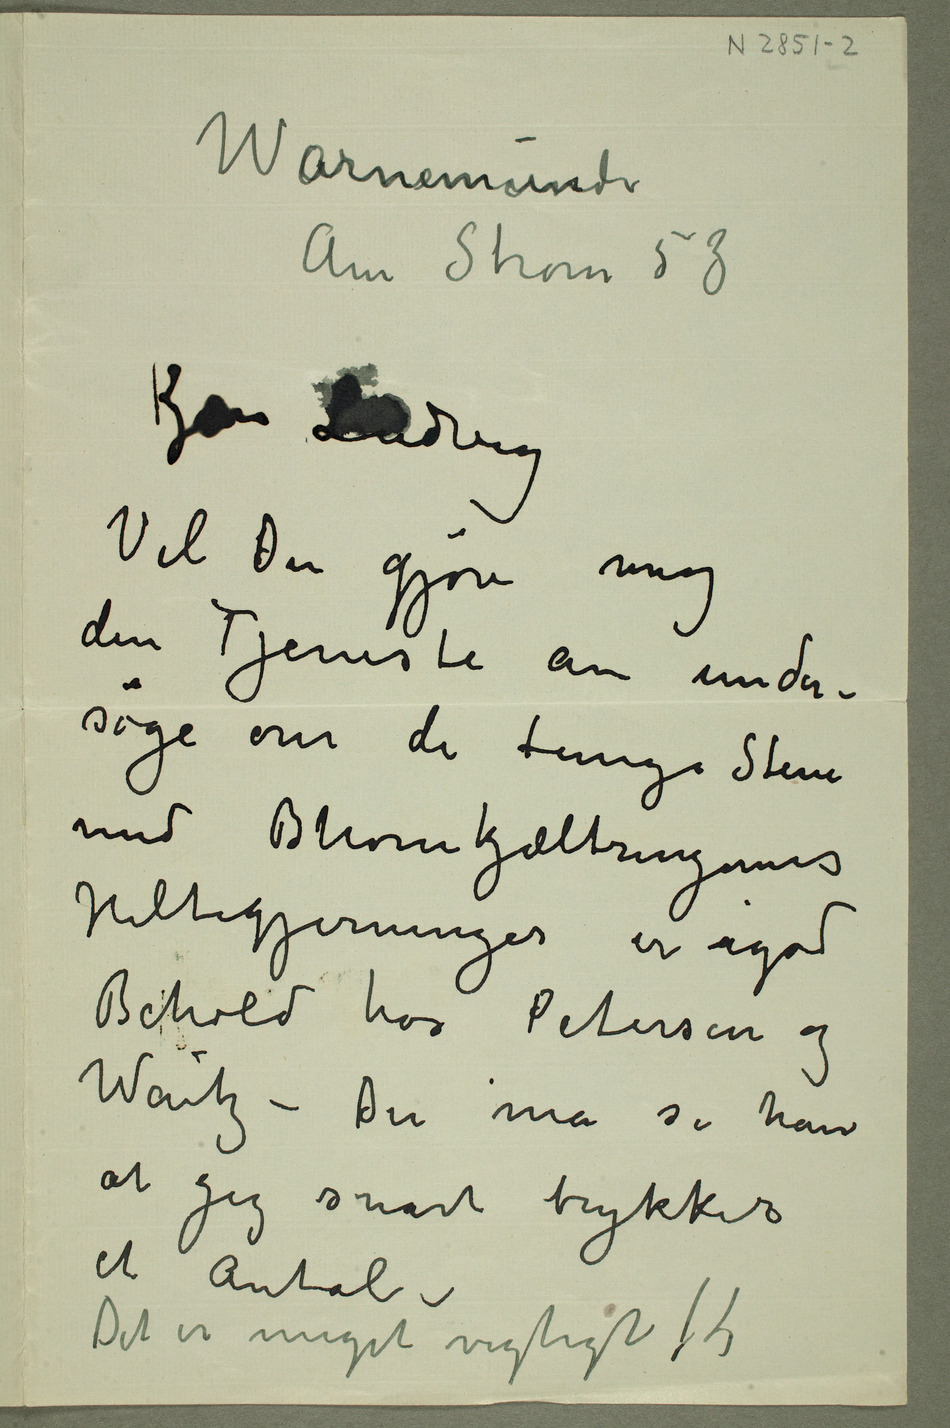 N 2851-2
Warnemünde
Am Strom 53
Kjære Ludvig
Vil Du gjöre mig
den Tjeneste at under-
söge om de tunge Stene
med Bhomekjæltringernes
Heltegjerninger er igod
Behold hos Petersen og
Waitz – Du må si ham
at jeg snart trykker
et Antal –
Det er meget vigtigt !!